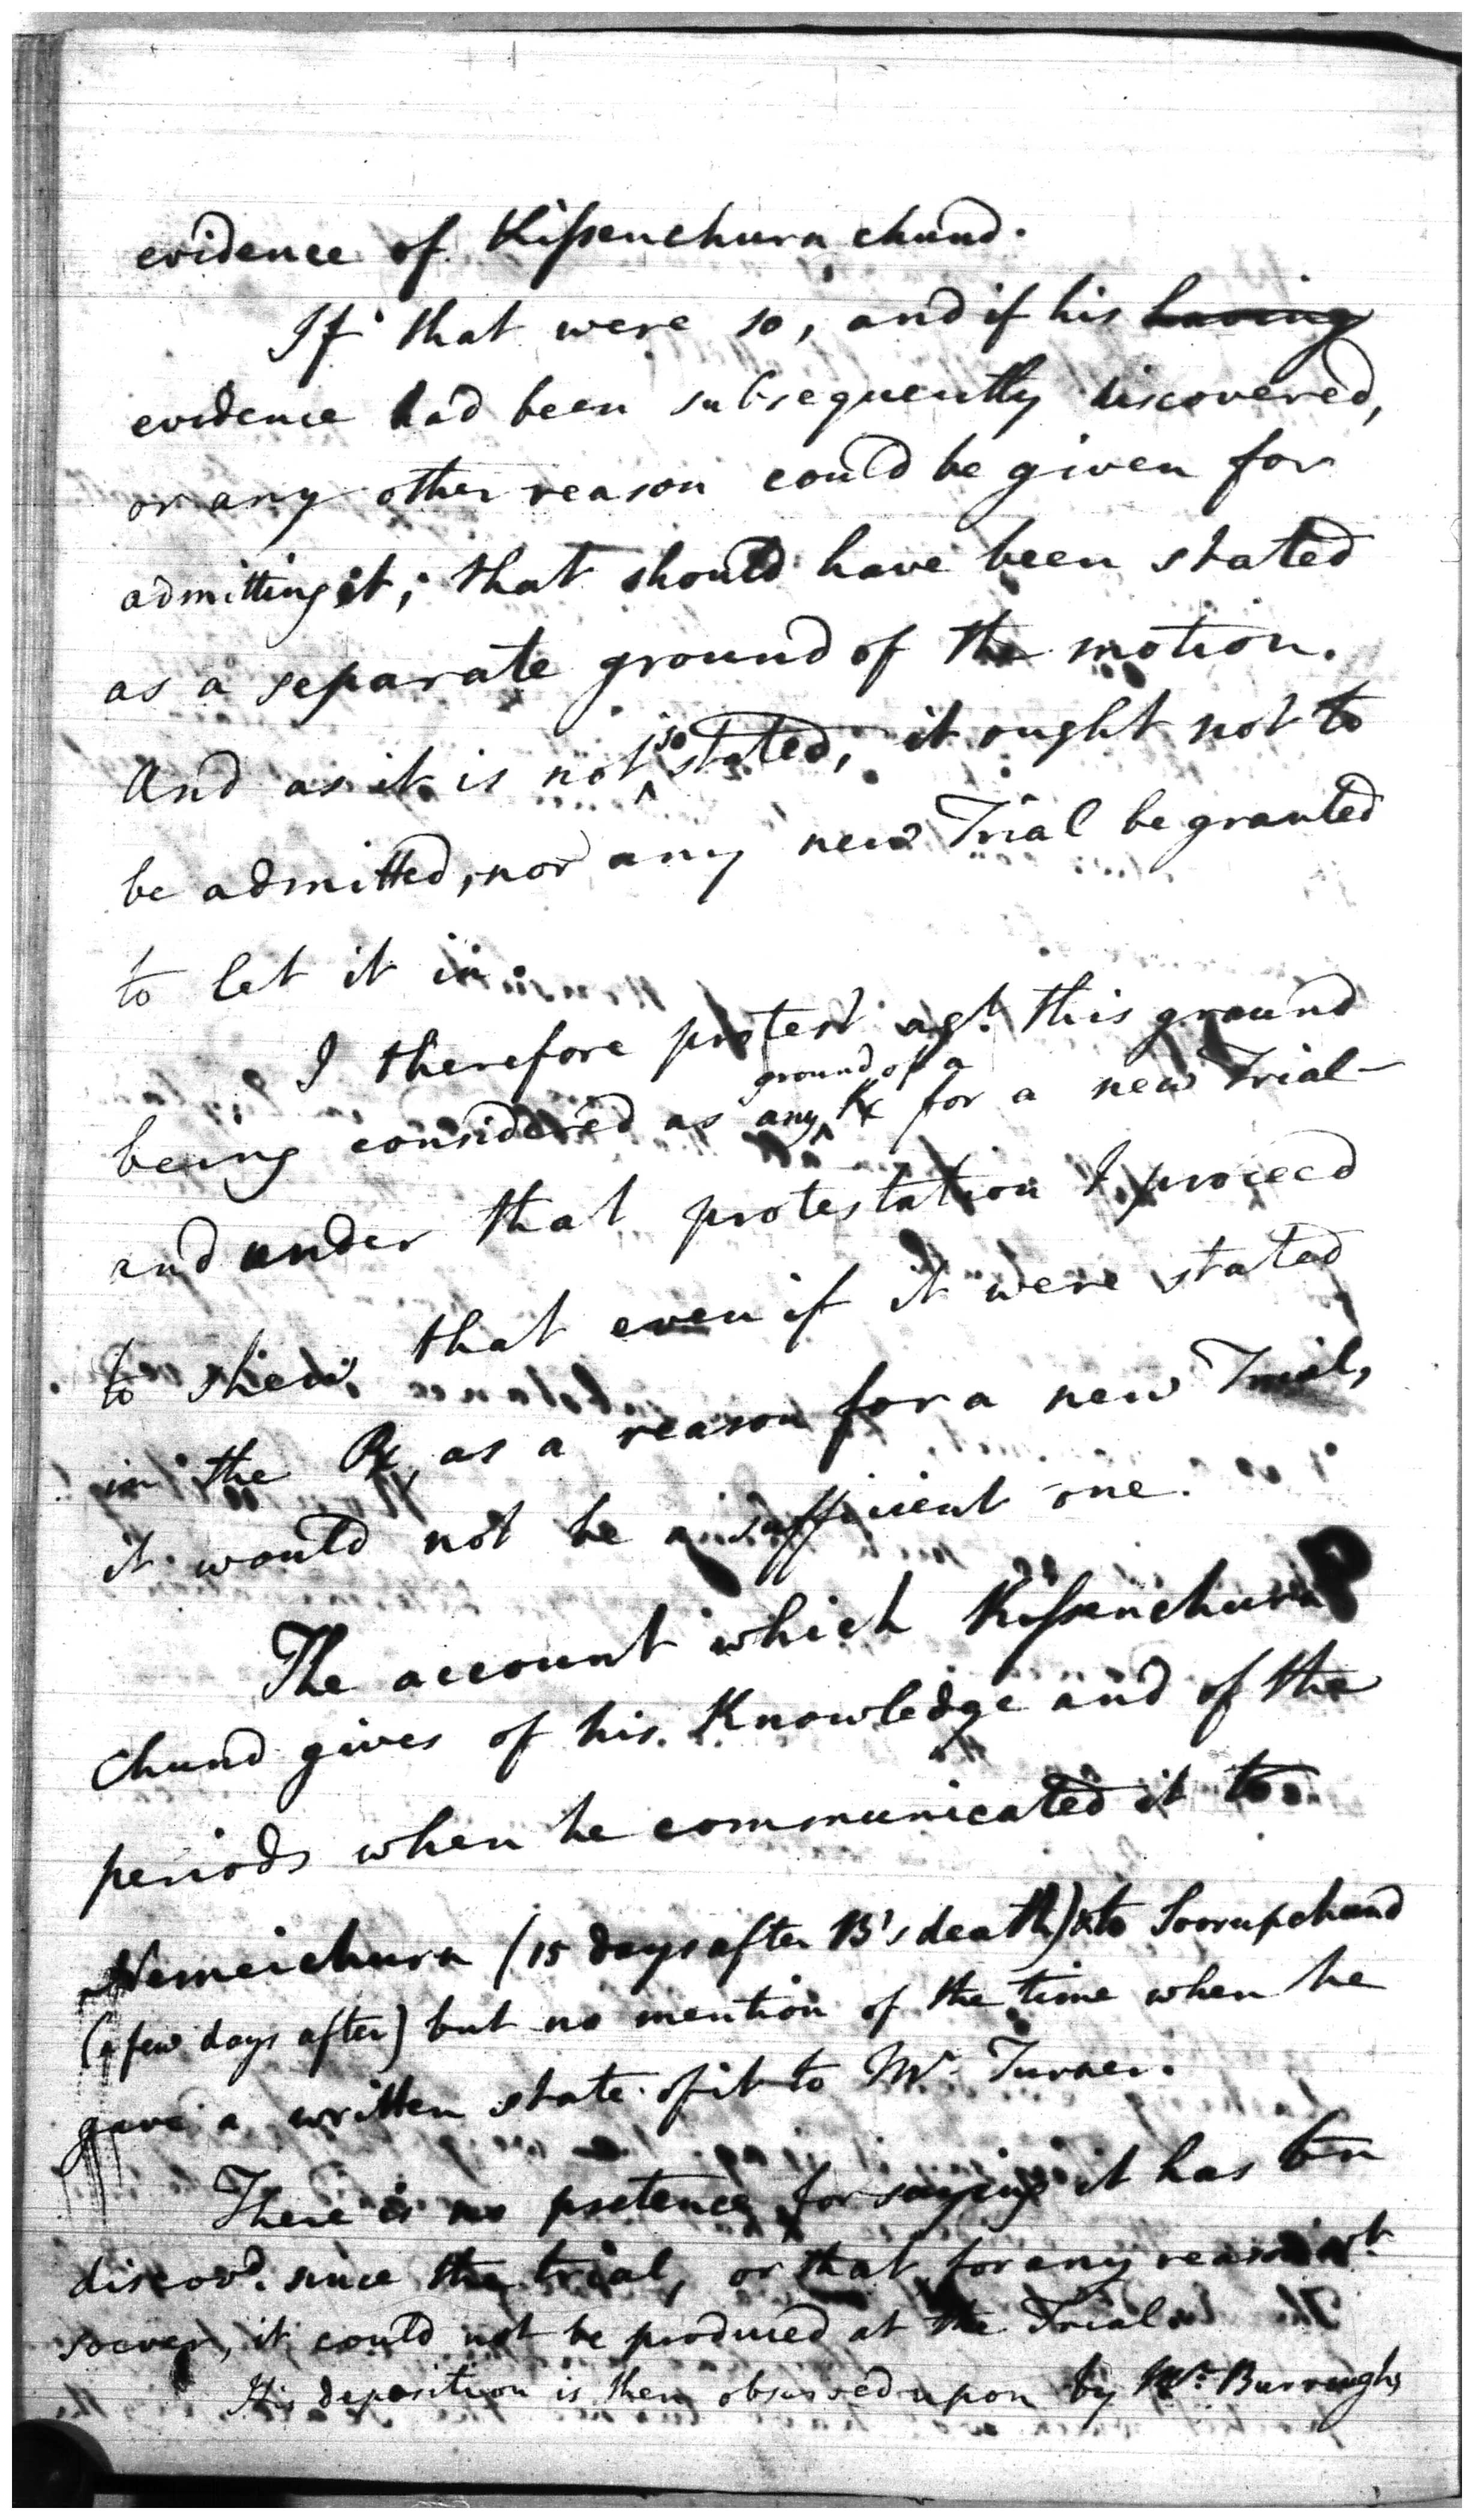 evidence of Kissenchurn chund.
If that were so, and if his having
evidence had been subsequently discovered,
or any other reason could be given for
admitting it; that should have been stated
as a separate ground of the motion.
And as it is not so stated, it ought not to
be admitted, nor any new Trial be granted
to let it in.
I therefore protest agt. this ground
being considered as any ground of a Rx for a new Trial—
and under that protestation I proceed
to shew, that even if it were stated
in the Rx, as a reason for a new Trial,
it would not be a sufficient one.
The account which Kissenchurn
Chund gives of his Knowledge and of the
periods when he communicated it to
Nemeichurn (15 days after B's death) & to Soorupchund
(a few days after) but no mention of the time when he
gave a written state of it to Mr. Turner.
There is no pretence for saying it has bn
discovd. since the trial, or that for any reason wt.
soever, it could not be produced at the Trial.
His deposition is then observed upon by Mr. Burroughs